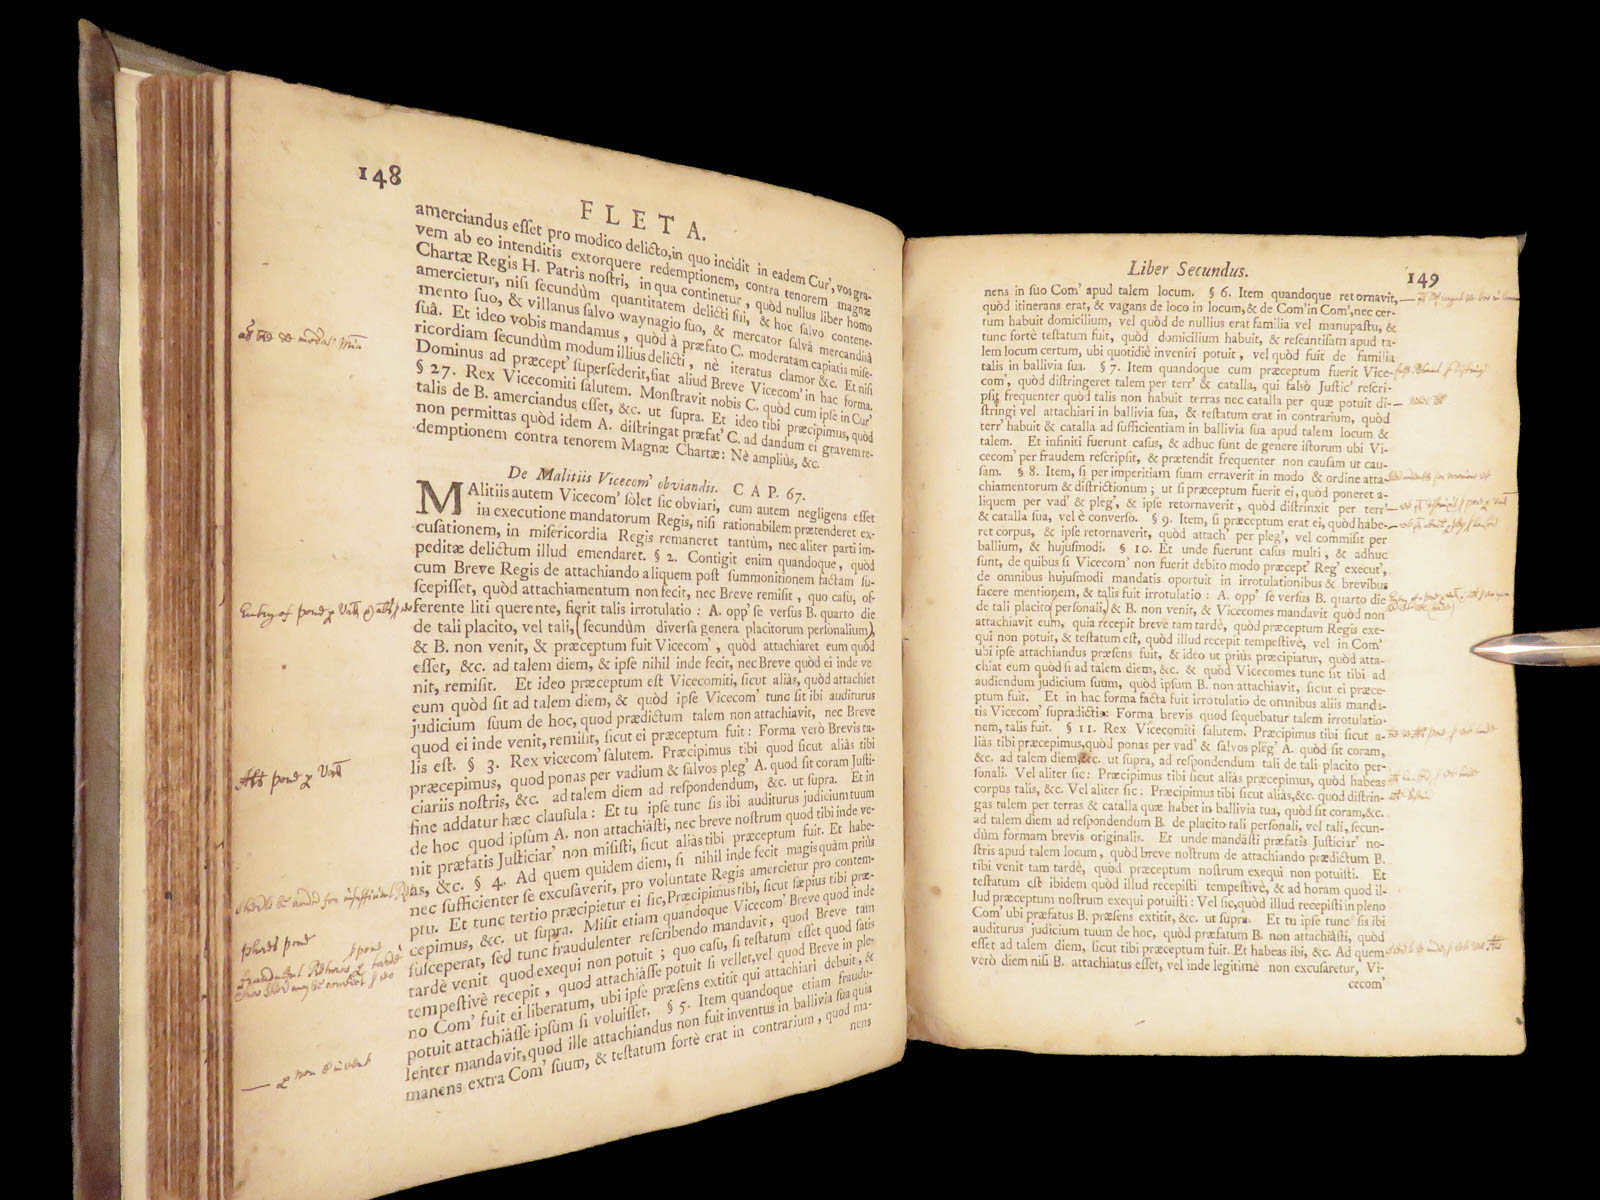 148
FLETA.
amerciandus esset pro modico delicto, in quo incidit in eadem Cur', vos gra-
vem ab eo intenditis extorquere redemptionem, contra tenorem magnæ
Chartæ Regis H. Patris nostri, in qua continetur, quòd nullus liber homo
amercietur, nisi secundùm quantitatem delicti sui, & hoc salvo contene-
mento suo, & villanus salvo waynagio suo, & mercator salvâ mercandisâ
suâ. Et ideo vobis mandamus, quòd à præfato C. moderatam capiatis mise-
ricordiam secundùm modum illius delicti, nè iteratus clamor &c. Et nisi
Dominus ad præcept' supersederit, fiat aliud Breve Vicecom' in hac forma.
§ 27. Rex Vicecomiti salutem. Monstravit nobis C. quòd cum ipse in Cur'
talis de B. amerciandus esset, &c. ut supra. Et ideo tibi præcipimus, quòd
non permittas quòd idem A. distringat præfat' C. ad dandum ei gravem re-
demptionem contra tenorem Magnæ Chartæ: Nè ampliùs, &c.
De Malitiis Vicecom' obviandis. CAP. 67.
MAlitiis autem Vicecom' solet sic obviari, cum autem negligens esset
in executione mandatorum Regis, nisi rationabilem prætenderet ex-
cusationem, in misericordia Regis remaneret tantùm, nec aliter parti im-
peditæ delictum illud emendaret. § 2. Contigit enim quandoque, quòd
cum Breve Regis de attachiando aliquem post summonitionem factam su-
scepisset, quòd attachiamentum non fecit, nec Breve remisit, quo casu, of-
ferente liti querente, fierit talis irrotulatio: A. opp' se versus B. quarto die
de tali placito, vel tali, (secundùm diversa genera placitorum personalium)
& B. non venit, & præceptum fuit Vicecom', quòd attachiaret eum quòd
esset, &c. ad talem diem, & ipse nihil inde fecit, nec Breve quòd ei inde ve
nit, remisit. Et ideo præceptum est Vicecomiti, sicut aliàs, quòd attachiet
eum quòd sit ad talem diem, & quòd ipse Vicecom' tunc sit ibi auditurus
judicium suum de hoc, quod prædictum talem non attachiavit, nec Breve
quod ei inde venit, remisit, sicut ei præceptum fuit: Forma verò Brevis ta-
lis est. § 3. Rex vicecom' salutem. Præcipimus tibi quod sicut aliàs tibi
præcepimus, quod ponas per vadium & salvos pleg' A. quod sit coram Justi-
ciariis nostris, &c. ad talem diem ad respondendum, &c. ut supra. Et in
fine addatur hæc clausula: Et tu ipse tunc sis ibi auditurus judicium tuum
de hoc quod ipsum A. non attachiâsti, nec breve nostrum quod tibi inde ve-
nit præfatis Justiciar' non misisti, sicut aliàs tibi præceptum fuit. Et habe-
as, &c. § 4. Ad quem quidem diem, si nihil inde fecit magis quàm priùs
nec sufficienter se excusaverit, pro voluntate Regis amercietur pro contem-
ptu. Et tunc tertio præcipietur ei sic, Præcipimus tibi, sicut sæpius tibi præ-
cepimus, &c. ut supra. Misit etiam quandoque Vicecom' Breve quod inde
susceperat, sed tunc fraudulenter rescribendo mandavit, quod Breve tam
tardè venit quod exequi non potuit; quo casu, si testatum esset quod satis
tempestivè recepit, quod attachiâsse potuit si vellet, vel quod Breve in ple-
no Com' fuit ei liberatum, ubi ipse præsens extitit qui attachiari debuit, &
potuit attachiâsse ipsum si voluisset. § 5. Item quandoque etiam fraudu-
lenter mandavit, quod ille attachiandus non fuit inventus in ballivia sua quia
manens extra Com' suum, & testatum fortè erat in contrarium, quod ma-
nens
Liber Secundus.
149
nens in suo Com' apud talem locum. § 6. Item quandoque retornavit,
quòd itinerans erat, & vagans de loco in locum, & de Com' in Com', nec cer-
tum habuit domicilium, vel quòd de nullius erat familia vel manupastu, &
tunc fortè testatum fuit, quòd domicilium habuit, & rescantisam apud ta-
lem locum certum, ubi quotidiè inveniri potuit, vel quòd fuit de familia
talis in ballivia sua. § 7. Item quandoque cum præceptum fuerit Vice-
com', quòd distringeret talem per terr' & catalla, qui falsò Justic' rescri-
psit frequenter quòd talis non habuit terras nec catalla per quæ potuit di-
stringi vel attachiari in ballivia sua, & testatum erat in contrarium, quòd
terr' habuit & catalla ad sufficientiam in ballivia sua apud talem locum &
talem. Et infiniti fuerunt casus, & adhuc sunt de genere istorum ubi Vi-
cecom' per fraudem rescripsit, & prætendit frequenter non causam ut cau-
sam. § 8. Item, si per imperitiam suam erraverit in modo & ordine atta-
chiamentorum & districtionum; ut si præceptum fuerit ei, quòd poneret a-
liquem per vad' & pleg', & ipse retornaverit, quòd distrinxit per terr'
& catalla sua, vel è converso. § 9. Item, si præceptum erat ei, quòd habe-
ret corpus, & ipse retornaverit, quòd attach' per pleg', vel commisit per
ballium, & hujusmodi. § 10. Et unde fuerunt casus multi, & adhuc
sunt, de quibus si Vicecom' non fuerit debito modo præcept' Reg' execut',
de omnibus hujusmodi mandatis oportuit in irrotulationibus & brevibus
facere mentionem, & talis fuit irrotulatio: A. opp' se versus B. quarto die
de tali placito (personali,) & B. non venit, & Vicecomes mandavit quòd non
attachiavit eum, quia recepit breve tam tardè, quòd præceptum Regis exe-
qui non potuit, & testatum est, quòd illud recepit tempestivè, vel in Com'
ubi ipse attachiandus præsens fuit, & ideo ut priùs præcipiatur, quòd atta-
chiat eum quòd si ad talem diem, &c. & quòd Vicecomes tunc sit tibi ad
audiendum judicium suum, quòd ipsum B. non attachiavit, sicut ei præce-
ptum fuit. Et in hac forma facta fuit irrotulatio de omnibus aliis manda-
tis Vicecom' supradictis: Forma brevis quod sequebatur talem irrotulatio-
nem, talis fuit. § 11. Rex Vicecomiti salutem. Præcipimus tibi sicut a-
liàs tibi præcepimus, quòd ponas per vad' & salvos pleg' A. quòd sit coram,
&c. ad talem diem, &c. ut supra, ad respondendum tali de tali placito per-
sonali. Vel aliter sic: Præcipimus tibi sicut aliàs præcepimus, quòd habeas
corpus talis, &c. Vel aliter sic: Præcipimus tibi sicut aliàs, &c. quòd distrin-
gas talem per terras & catalla quæ habet in ballivia tua, quòd sit coram, &c.
ad talem diem ad respondendum B. de placito tali personali, vel tali, secun-
dùm formam brevis originalis. Et unde mandâsti præfatis Justiciar' no-
stris apud talem locum, quòd breve nostrum de attachiando prædictum B.
tibi venit tam tardè, quòd præceptum nostrum exequi non potuisti. Et
testatum est ibidem quòd illud recepisti tempestivè, & ad horam quod il-
lud præceptum nostrum exequi potuisti: Vel sic, quòd illud recepisti in pleno
Com' ubi præfatus B. præsens extitit, &c. ut supra. Et tu ipse tunc sis ibi
auditurus judicium tuum de hoc, quòd præfatum B. non attachiâsti, quòd
esset ad talem diem, sicut tibi præceptum fuit. Et habeas ibi, &c. Ad quem
verò diem nisi B. attachiatus esset, vel inde legitimè non excusaretur, Vi-
cecom'